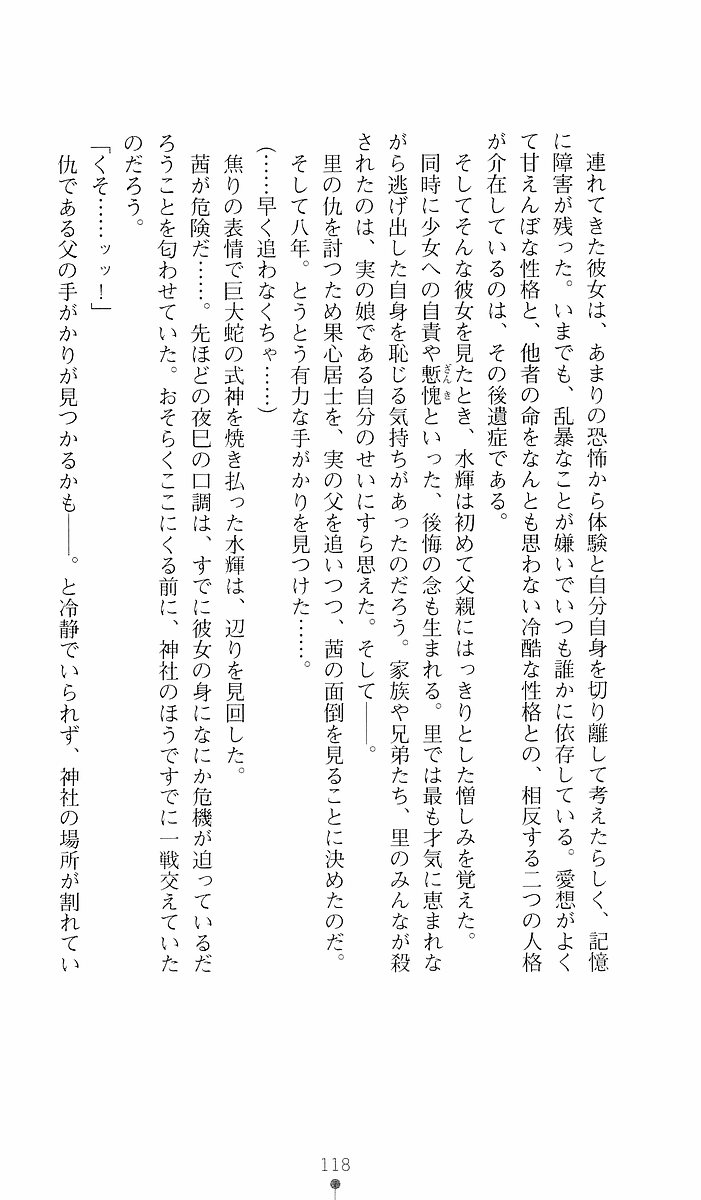 連れてきた彼女は、あまりの恐怖から体験と自分自身を切り離して考えたらしく、記憶
に障害が残った。いまでも、乱暴なことが嫌いでいつも誰かに依存している。愛想がよく
て甘えんぼな性格と、他者の命をなんとも思わない冷酷な性格との、相反する二つの人格
が介在しているのは、その後遺症である。
そしてそんな彼女を見たとき、水輝は初めて父親にはっきりとした憎しみを覚えた。
同時に少女への自責や慙愧といった、後悔の念も生まれる。里では最も才気に恵まれな
ざんき
がら逃げ出した自身を恥じる気持ちがあったのだろう。家族や兄弟たち、里のみんなが殺
されたのは、実の娘である自分のせいにすら思えた。そして――。
里の仇を討つため果心居士を、実の父を追いつつ、茜の面倒を見ることに決めたのだ。
そして八年。とうとう有力な手がかりを見つけた……。
(……早く追わなくちゃ……)
焦りの表情で巨大蛇の式神を焼き払った水輝は、辺りを見回した。
茜が危険だ……。先ほどの夜巳の口調は、すでに彼女の身になにか危機が迫っているだ
ろうことを匂わせていた。おそらくここにくる前に、神社のほうですでに一戦交えていた
のだろう。
「くそ……ッッ！」
仇である父の手がかりが見つかるかも――。と冷静でいられず、神社の場所が割れてい
118